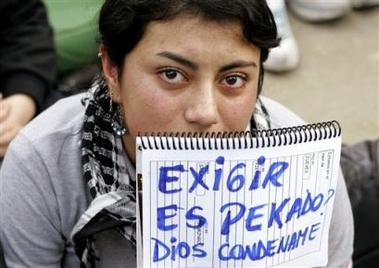 EXiGIR
ES PEKADO?
Dios CONDENAME